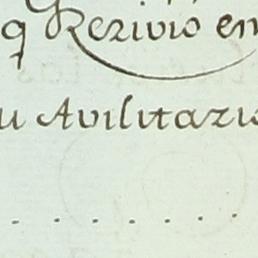 q Rezivio en
u Avilitazio